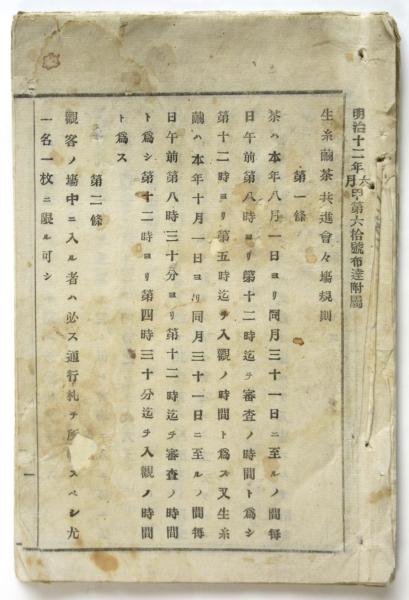 明治十二年六月甲第六拾號布達附屬
生糸繭茶共進會々塲規則
第一條
茶ハ本年八月一日ヨリ同月三十一日ニ至ルノ間每
日午前第八時ヨリ第十二時迄ヲ審査ノ時間ト爲シ
第十二時ヨリ第五時迄ヲ入觀ノ時間ト爲ス又生糸
繭ハ本年十月一日ヨリ同月三十一日ニ至ルノ間每
日午前第八時三十分ヨリ第十二時迄ヲ審査ノ時間
ト爲シ第十二時ヨリ第四時三十分迄ヲ入觀ノ時間
ト爲ス
第二條
觀客ノ塲中ニ入ル者ハ必ス通行札ヲ所スベシ尤
一名一枚ニ限ル可シ
一